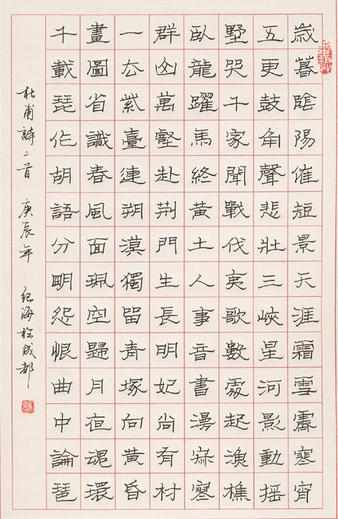 歲暮陰陽催短景天涯霜雪霽寒宵
五更鼓角聲悲壯三峽星河影動搖
墅哭千家聞戰伐夷歌數處起漁樵
臥龍躍馬終黃土人事音書漫寂寥
群山萬壑赴荊門生長明妃尚有村
一去紫臺連朔漠獨留青塚向黃昏
畫圖省識春風面珮空歸月夜魂環
千載琵作胡語分明怨恨曲中論琶
杜甫詩二首 庚辰年 紀海於成都